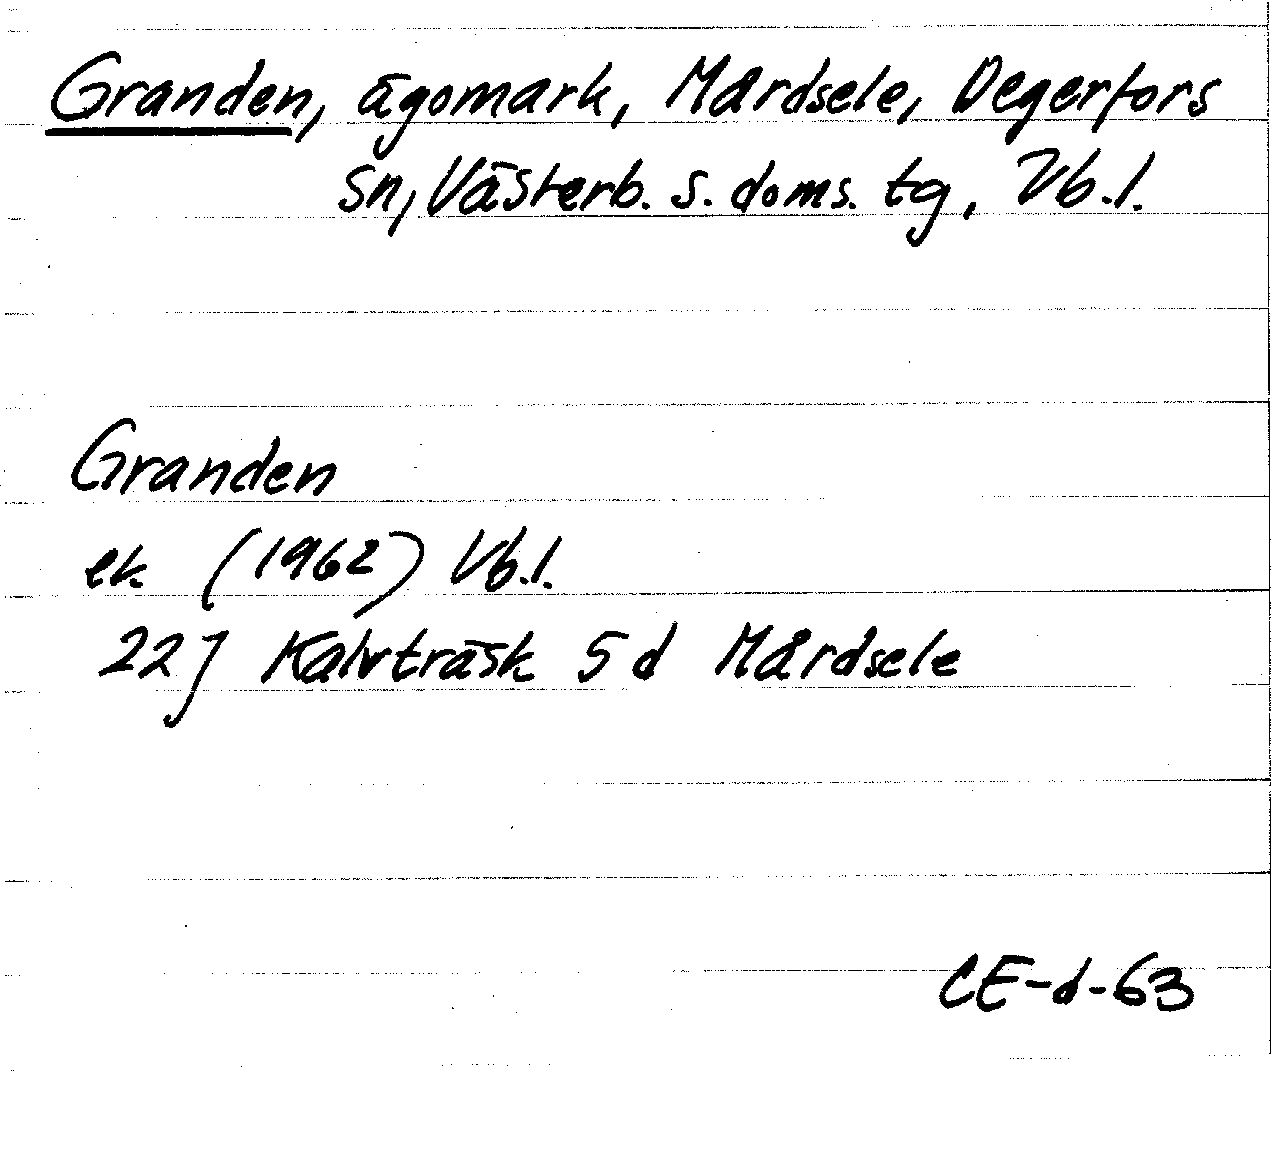 Granden, ägomark, Mårdsele, Degerfors
sn, Västerb. s. doms. tg, Vb.l.
Granden
ek (1962) Vb.l.
22J Kalvträsk 5 d Mårdsele
CE-d-63